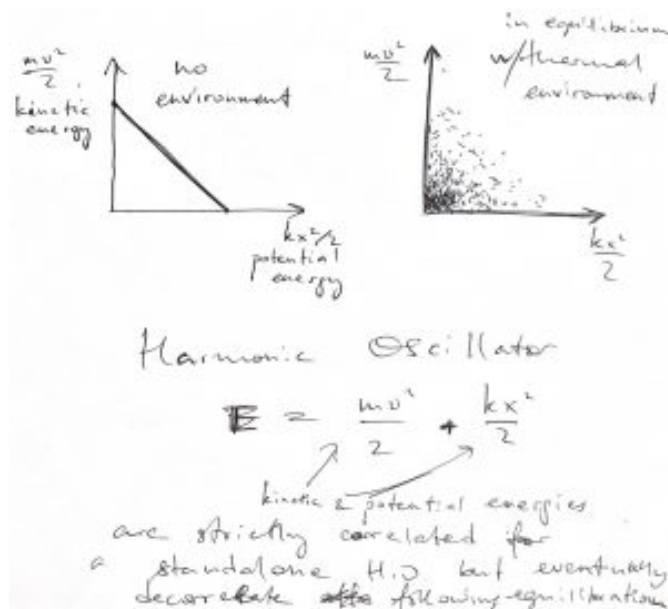 mv²/2
kinetic
energy
no
environment
kx²/2
potential
energy
in equilibrium
w/thermal
environment
mv²/2
kx²/2
Harmonic Oscillator
E = mv²/2 + kx²/2
kinetic & potential energies
are strictly correlated for
a standalone H.O but eventually
decorrelate following equilibration